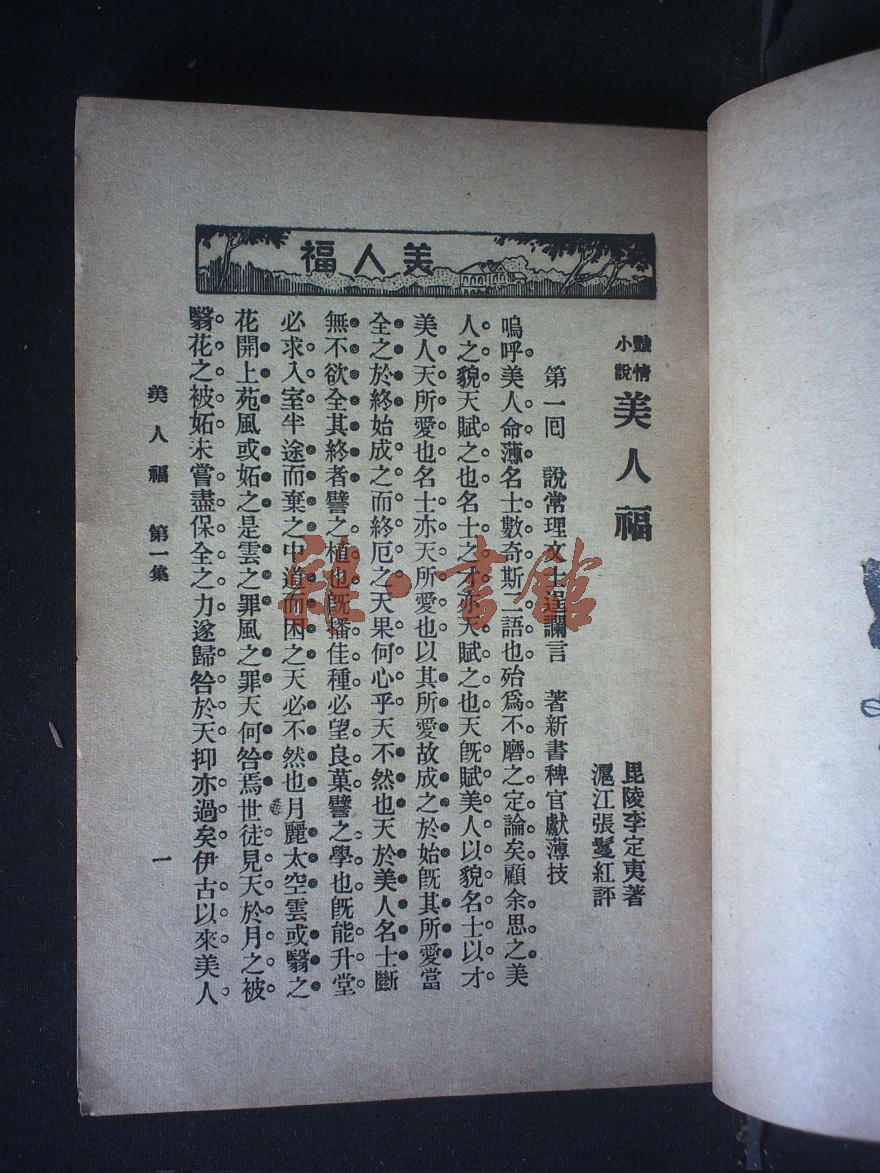 美人福
艷情小說 美人福
毘陵李定夷著
滬江張鬘紅評
第一囘　說常理文士逞讕言　著新書稗官獻薄技
嗚呼美人命薄名士數奇斯二語也殆爲不磨之定論矣顧余思之美
人之貌天賦之也名士之才亦天賦之也天旣賦美人以貌名士以才
美人天所愛也名士亦天所愛也以其所愛故成之於始旣其所愛當
全之於終始成之而終厄之天果何心乎天不然也天於美人名士斷
無不欲全其終者譬之植也旣播佳種必望良菓譬之學也旣能升堂
必求入室半途而棄之中道而困之天必不然也月麗太空雲或翳之
花開上苑風或妬之是雲之罪風之罪天何咎焉世徒見天於月之被
翳花之被妬未嘗盡保全之力遂歸咎於天抑亦過矣伊古以來美人
美人福　第一集
一
雜·書館